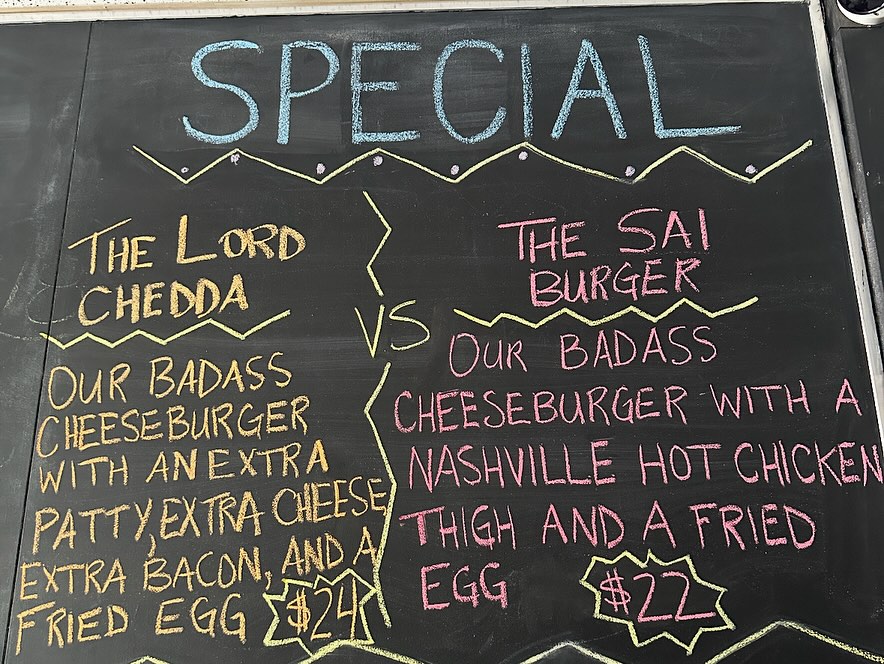 SPECIAL
THE LORD
CHEDDA
OUR BADASS
CHEESEBURGER
WITH AN EXTRA
PATTY, EXTRA CHEESE
EXTRA BACON, AND A
FRIED EGG $24
VS
THE SAI
BURGER
OUR BADASS
CHEESEBURGER WITH A
NASHVILLE HOT CHICKEN
THIGH AND A FRIED
EGG $22